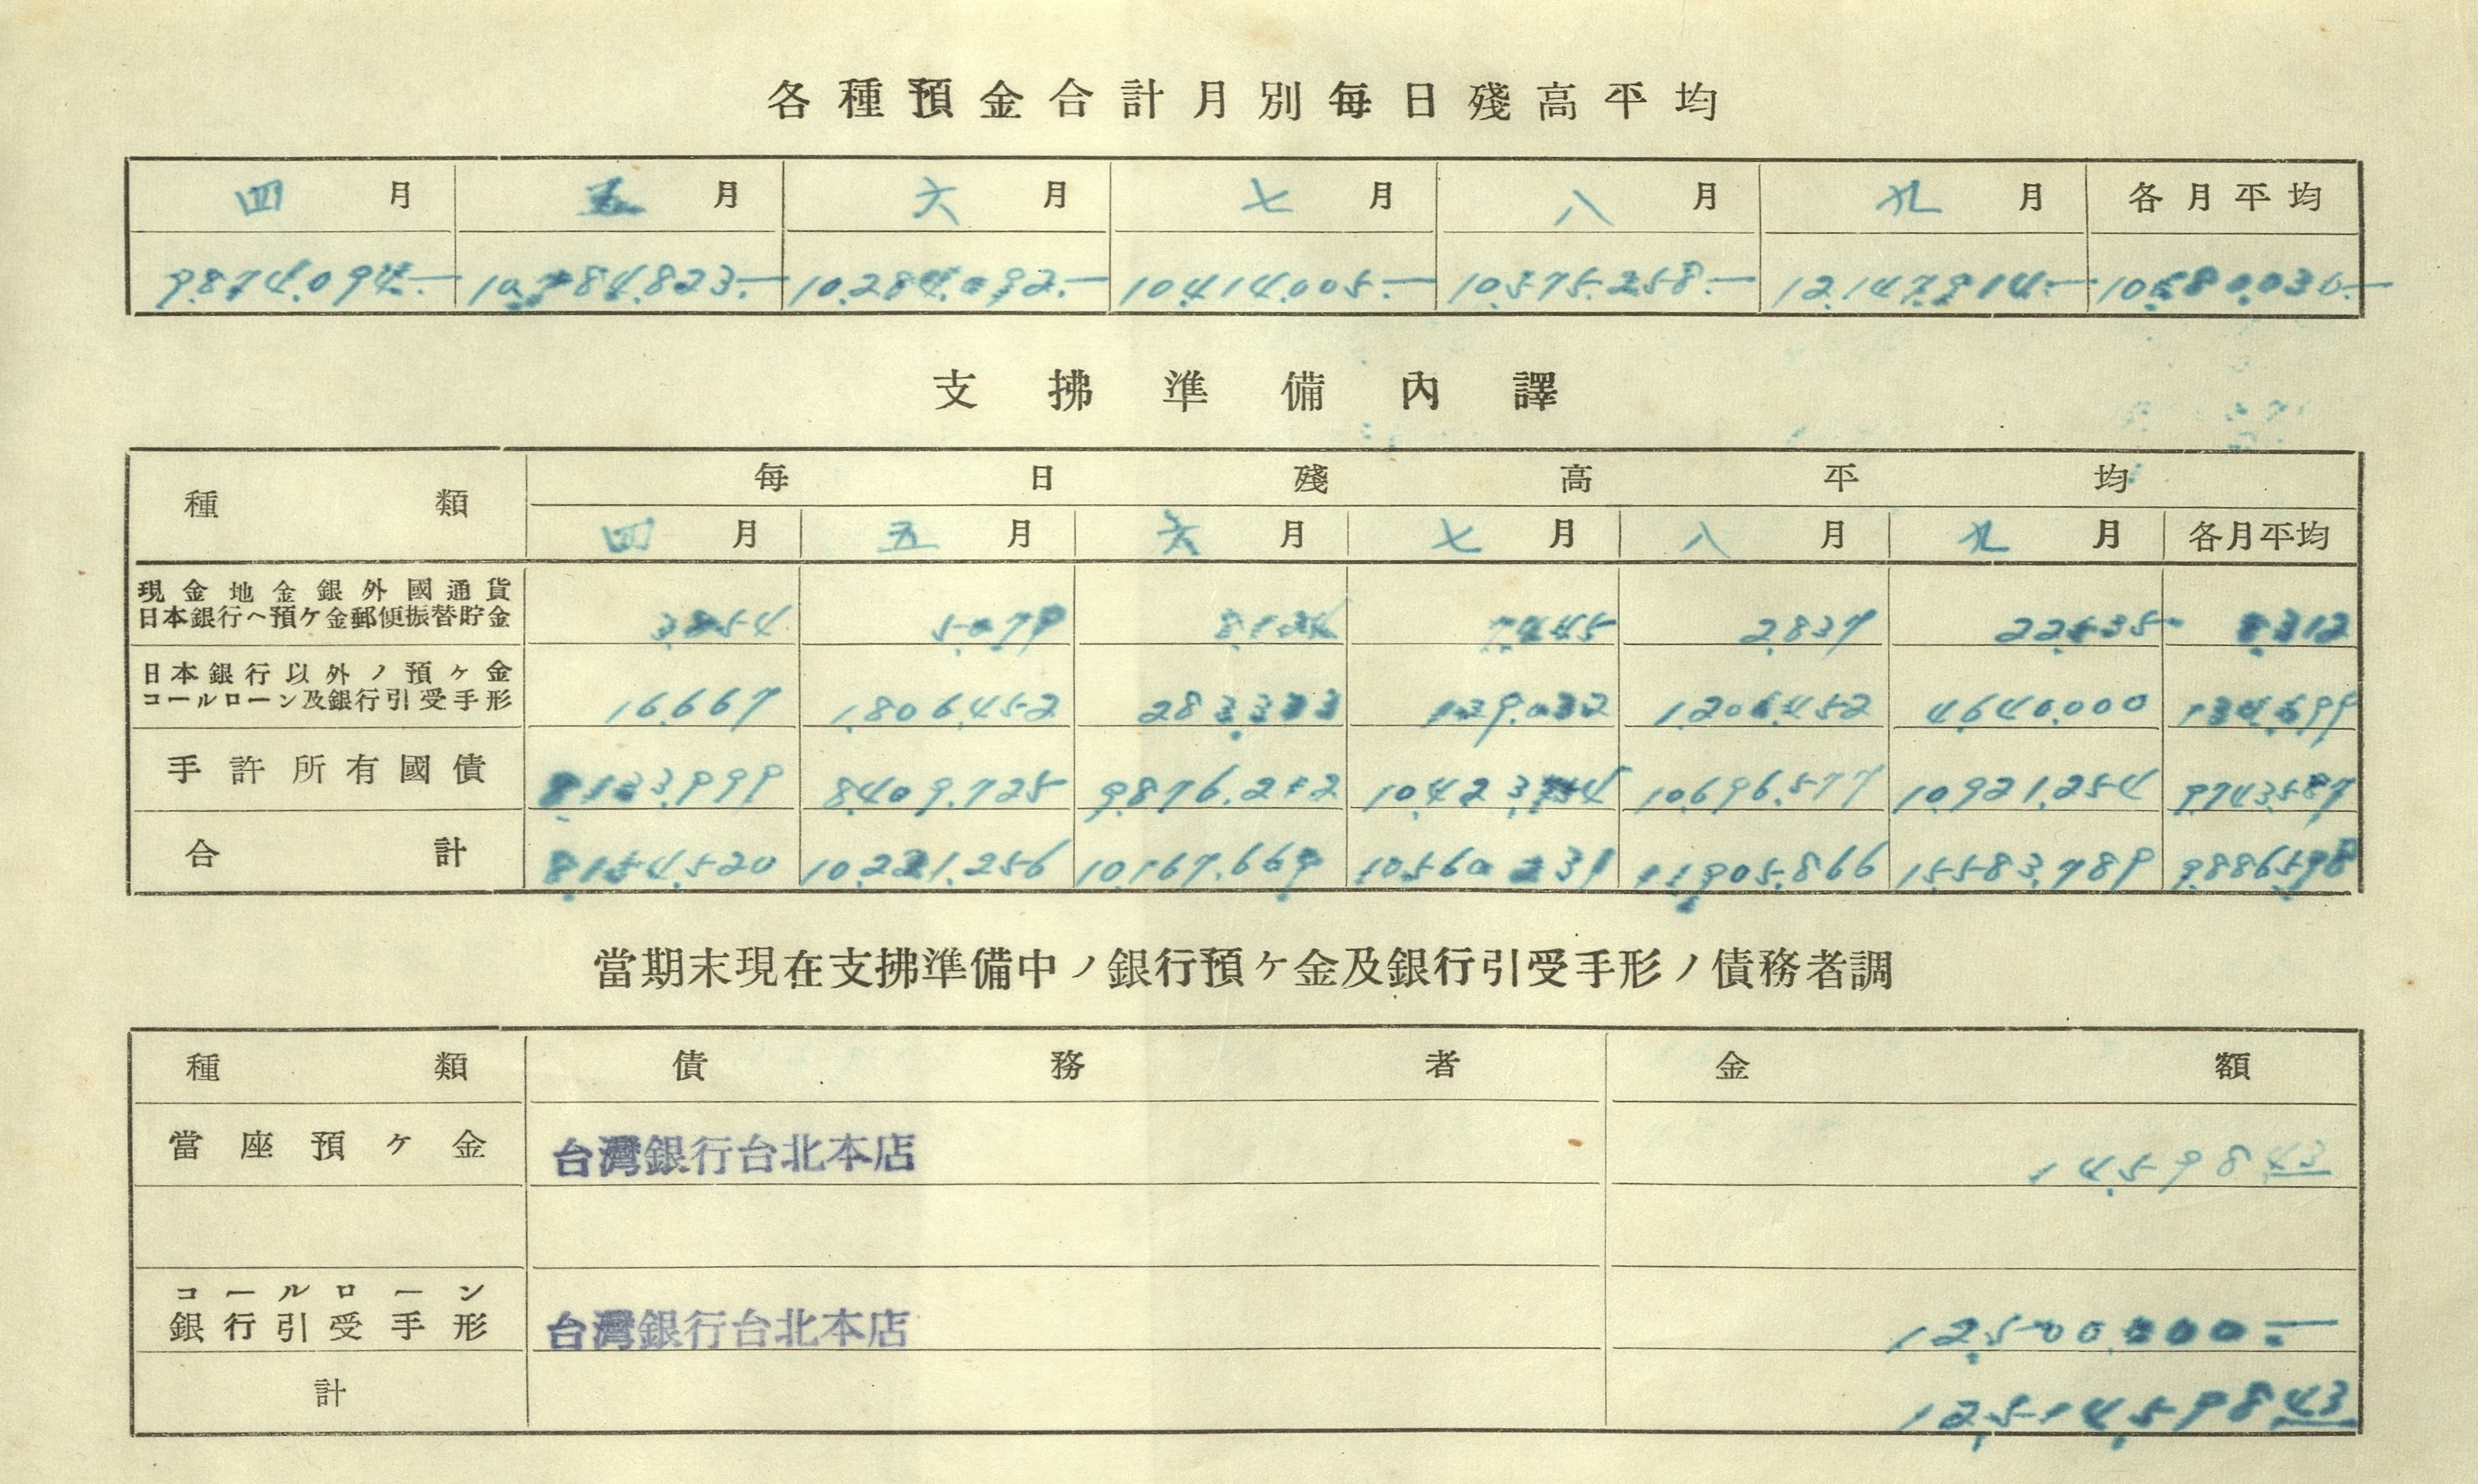 各種預金合計月別每日殘高平均
四月 五月 六月 七月 八月 九月 各月平均
9,874,094.— 10,184,823.— 10,284,092.— 10,414,005.— 10,575,258.— 12,147,914.— 10,580,030.—
支拂準備內譯
種類 每日殘高平均
四月 五月 六月 七月 八月 九月 各月平均
現金地金銀外國通貨
日本銀行ヘ預ケ金郵便振替貯金 3,854 5,079 8,124 7,445 2,837 22,535 8,312
日本銀行以外ノ預ヶ金
コールローン及銀行引受手形 16,667 1,806,452 283,333 129,032 1,206,452 4,640,000 134,699
手許所有國債 8,133,999 8,409,725 9,876,212 10,423,754 10,696,577 10,921,254 9,743,587
合計 8,154,520 10,221,256 10,167,669 10,560,231 11,905,866 15,583,789 9,886,598
當期末現在支拂準備中ノ銀行預ケ金及銀行引受手形ノ債務者調
種類 債務者 金額
當座預ケ金 台灣銀行台北本店 14,598.43
コールローン
銀行引受手形 台灣銀行台北本店 12,500,000.—
計 12,514,598.43